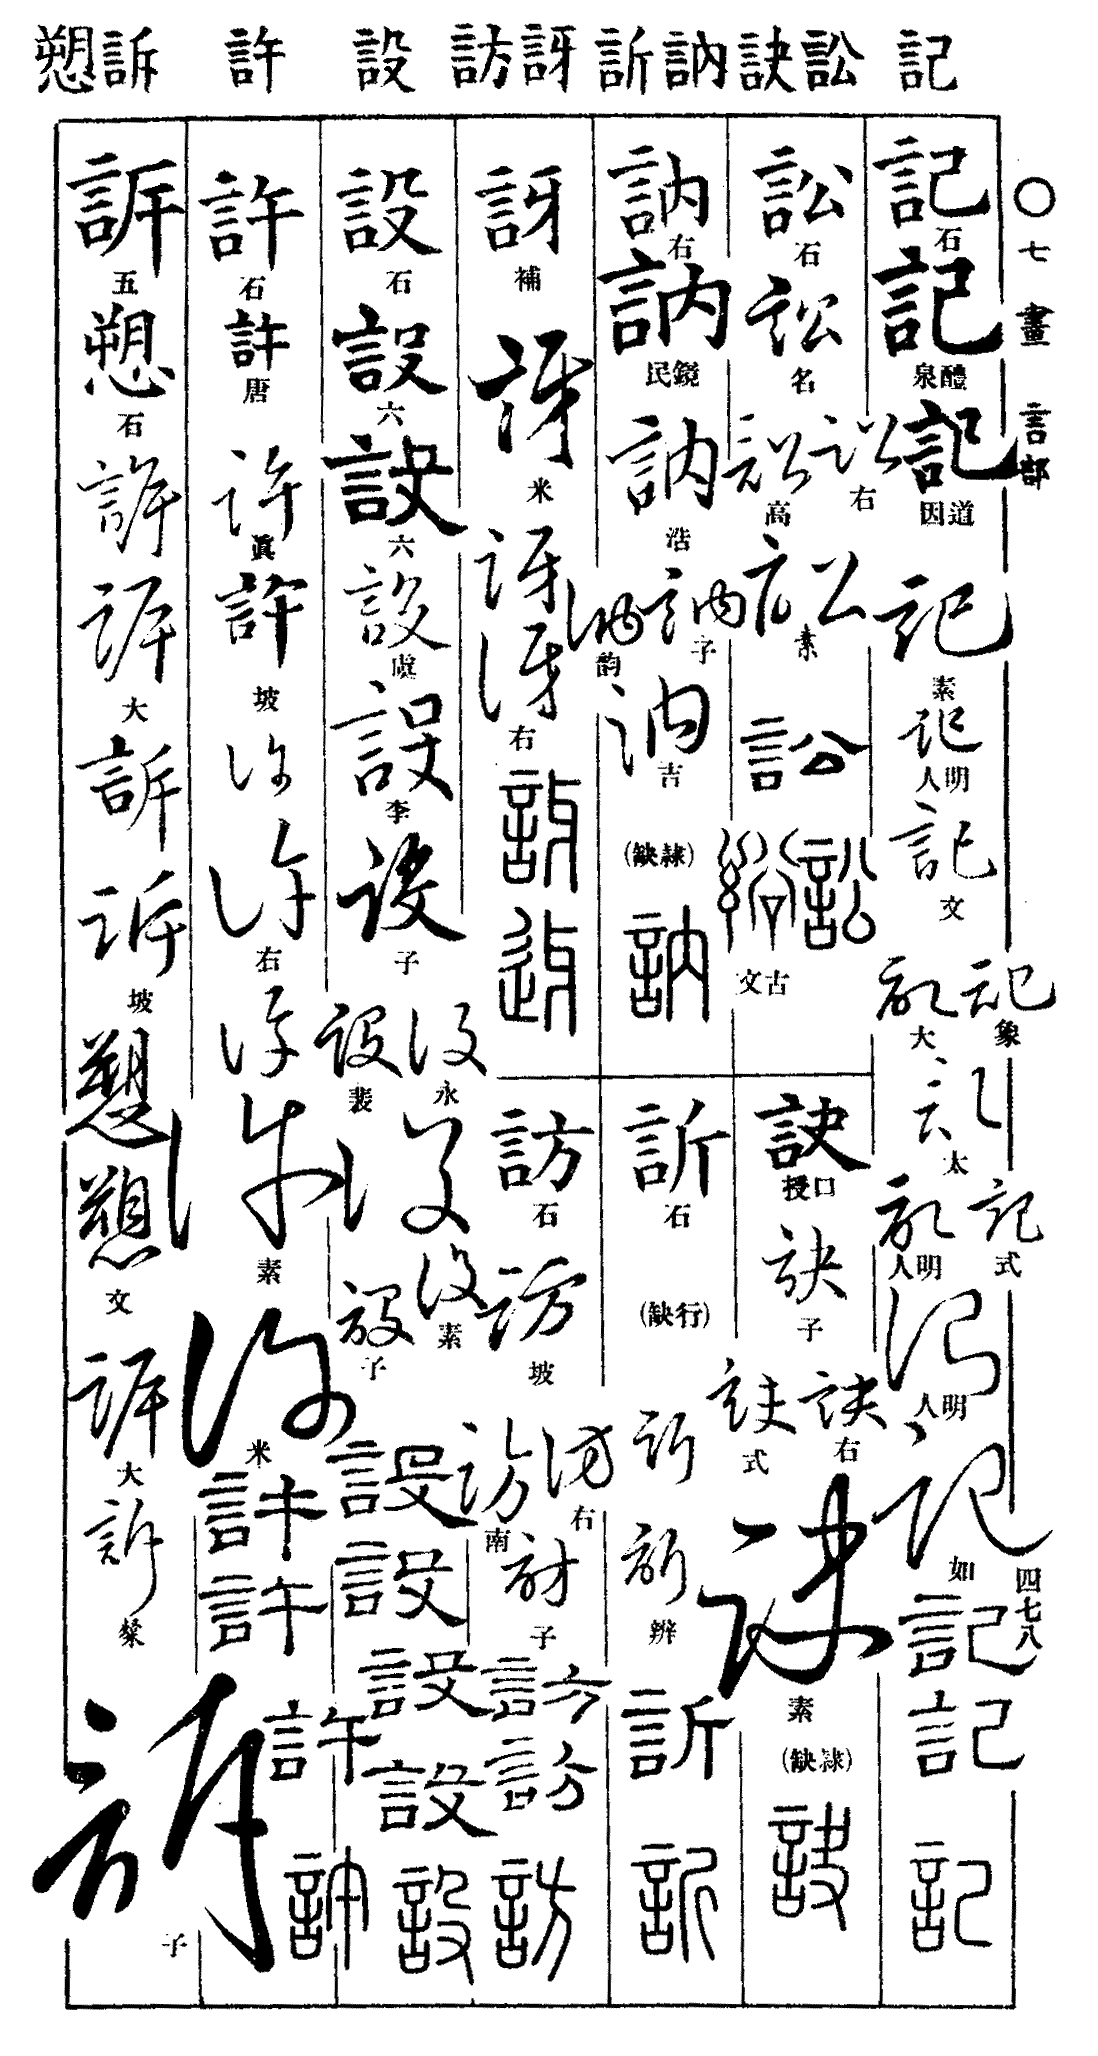 記 訟 訣 訥 訢 訝 訪 設 許 訴 愬
〇七畫 言部
四七八
記 石
記 醴泉
記 道因
記 素
記 明人
記 文
記 象
記 大
記 太
記 式
記 明人
記 明人
記 如
記
記
記
訟 石
訟 名
訟 右
訟 高
訟 素
訟
訟
古文
訣 口授
訣 子
訣 右
訣 式
訣 素
(隷缺)
訣
訥 右
訥 鏡民
訥 浩
訥 子
訥 韵
訥 吉
(隷缺)
訥
訢 石
(行缺)
訢
訢 辨
訢
訢
訝 補
訝 米
訝
訝 右
訝
迓
訪 石
訪 坡
訪 右
訪 南
訪 子
訪
訪
訪
設 石
設 六
設 六
設 虞
設 李
設 子
設 永
設 裴
設
設 素
設 子
設
設
設
設
設
許 石
許 唐
許 眞
許 坡
許
許 右
許
許 素
許 米
許
許
許
許
訴 五
愬 石
訴
訴 大
訴
訴 坡
愬
愬 文
訴 大
訴 棨
訴 子